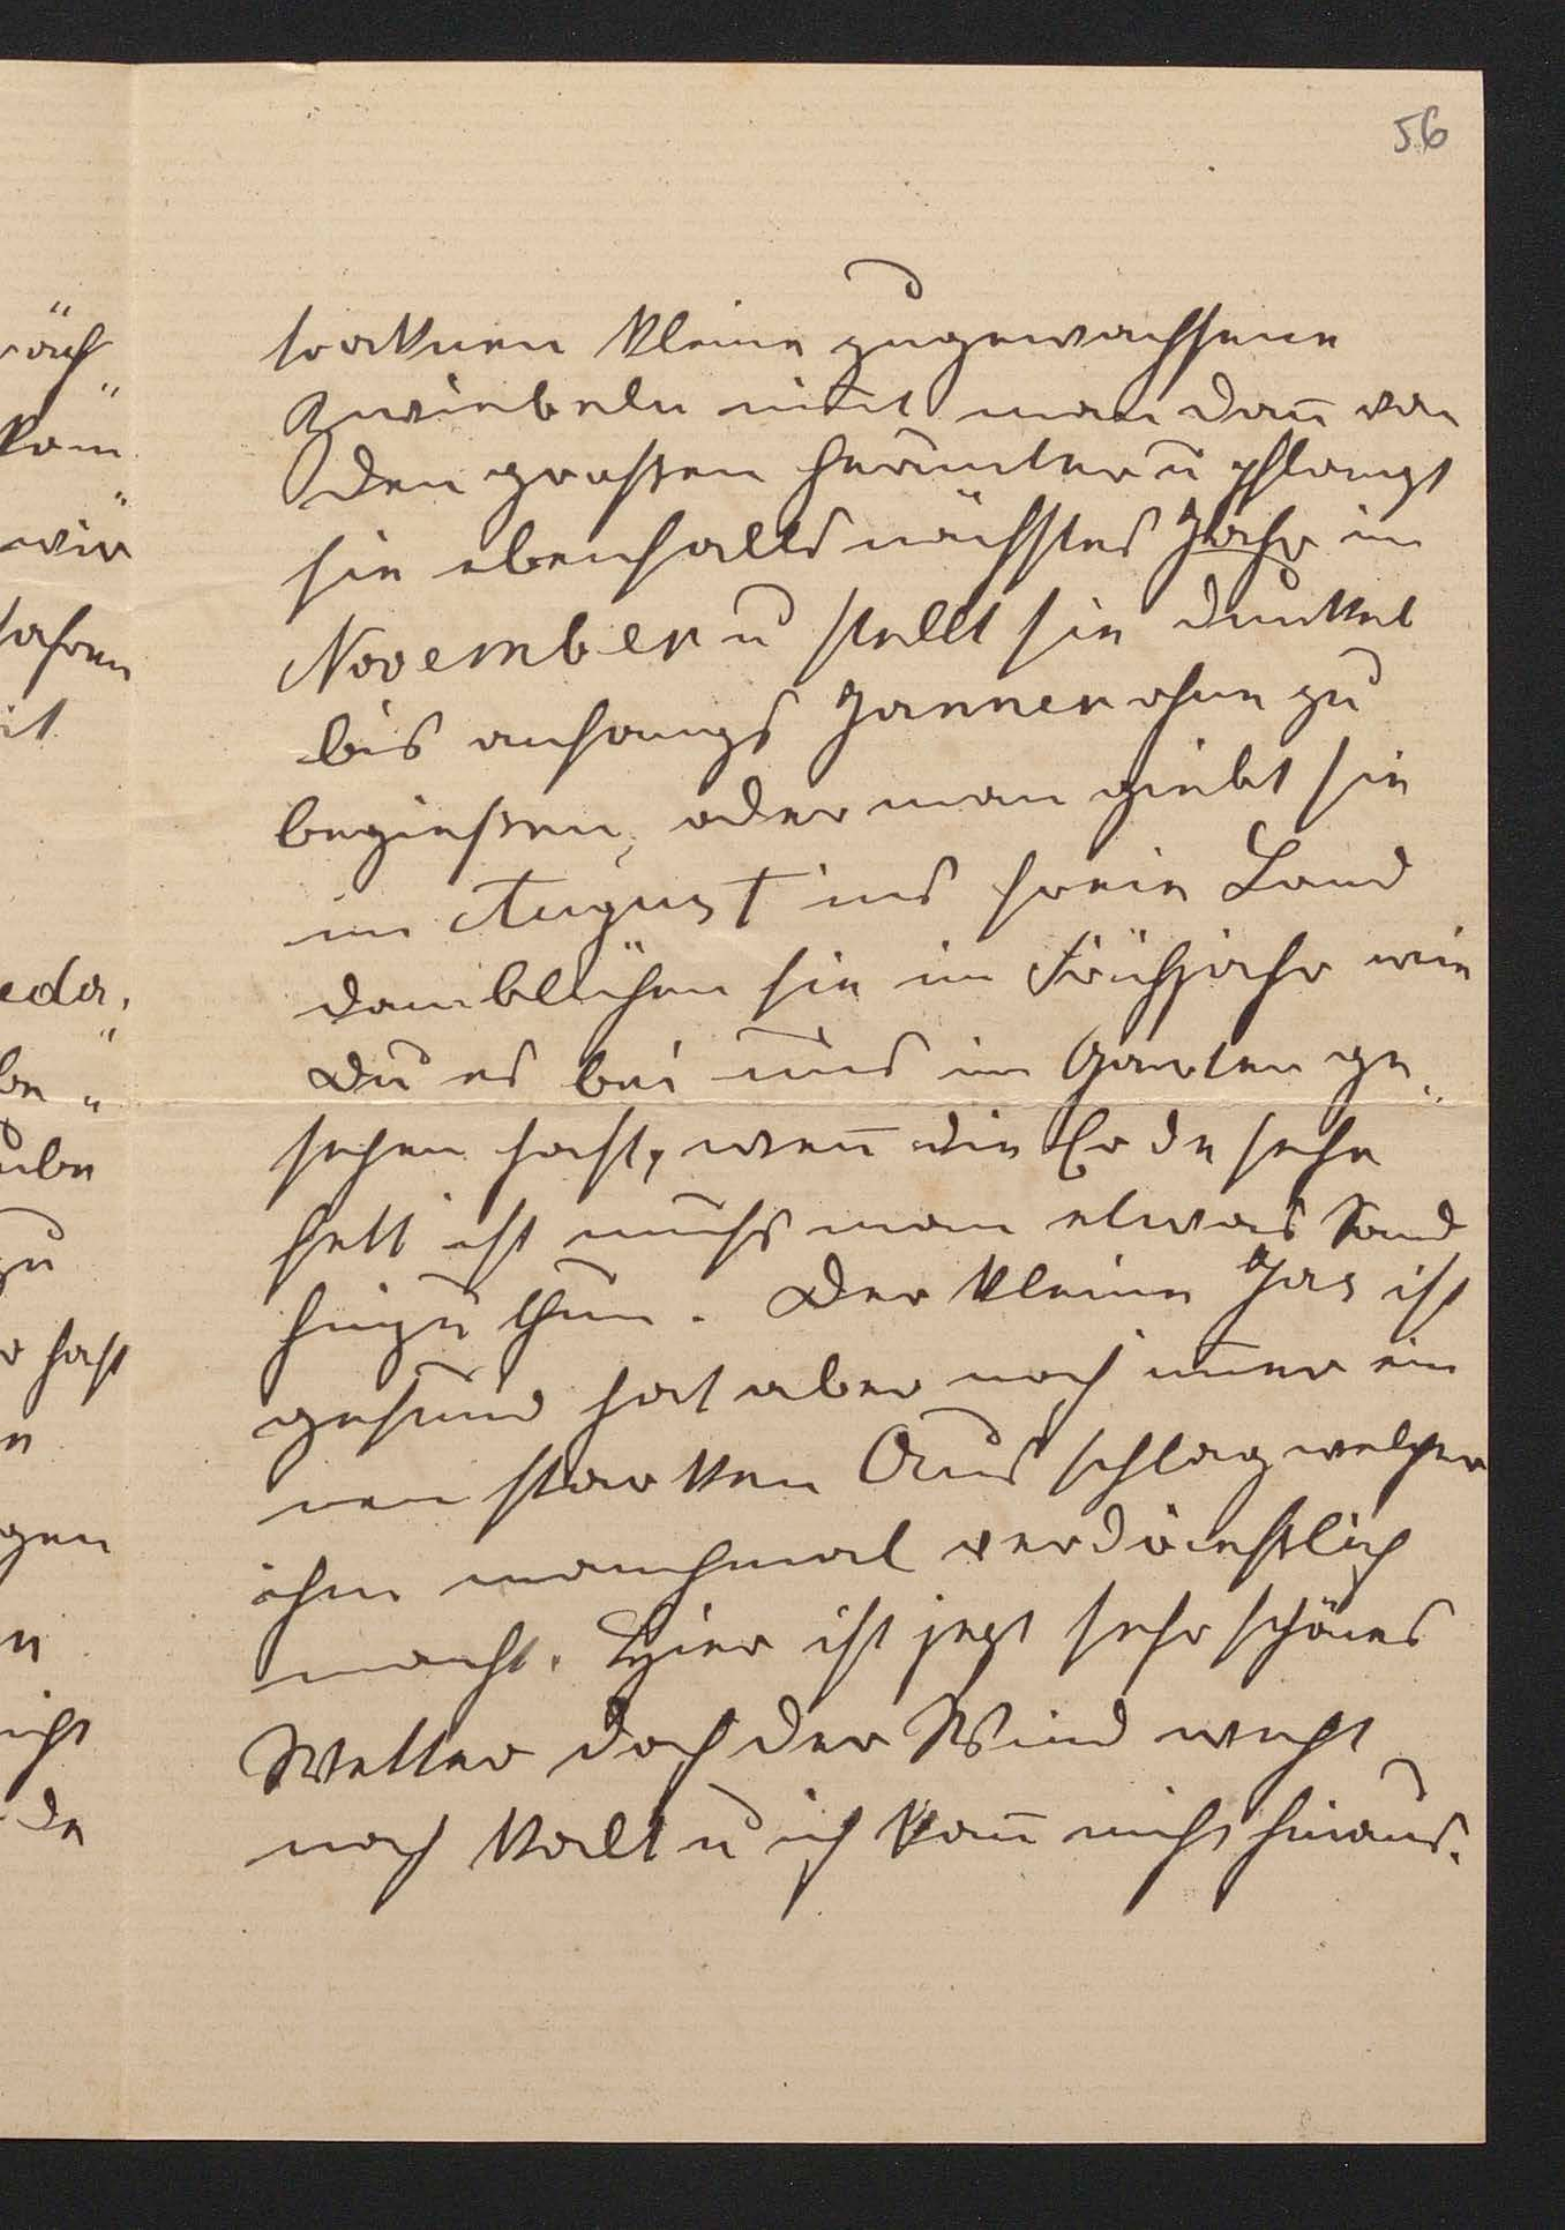 56
troknen kleine zugewachsene
Zwiebeln nim̅t man dan̅ von
den großen herunter u pflanzt
sie ebenfalls nächstes Jahr im
November u stellt sie dunkel
bis anfangs Janner ohne zu
begießen, oder man giebt sie
im August ins freie Land
dan blühen sie im Frühjahr wie
Du es bei uns im Garten ge„
sehen hast, wen̅ die Erde sehr
fett ist muß man etwas Sand
hinzu thun. Der kleine Jas ist
gesund hat aber noch im̅er ein
nen starken Ausschlag welcher
ihn manchmal verdrießlich
macht. Hier ist jezt sehr schönes
Wetter doch der Wind weht
noch kalt u ich kan̅ nicht hinaus.